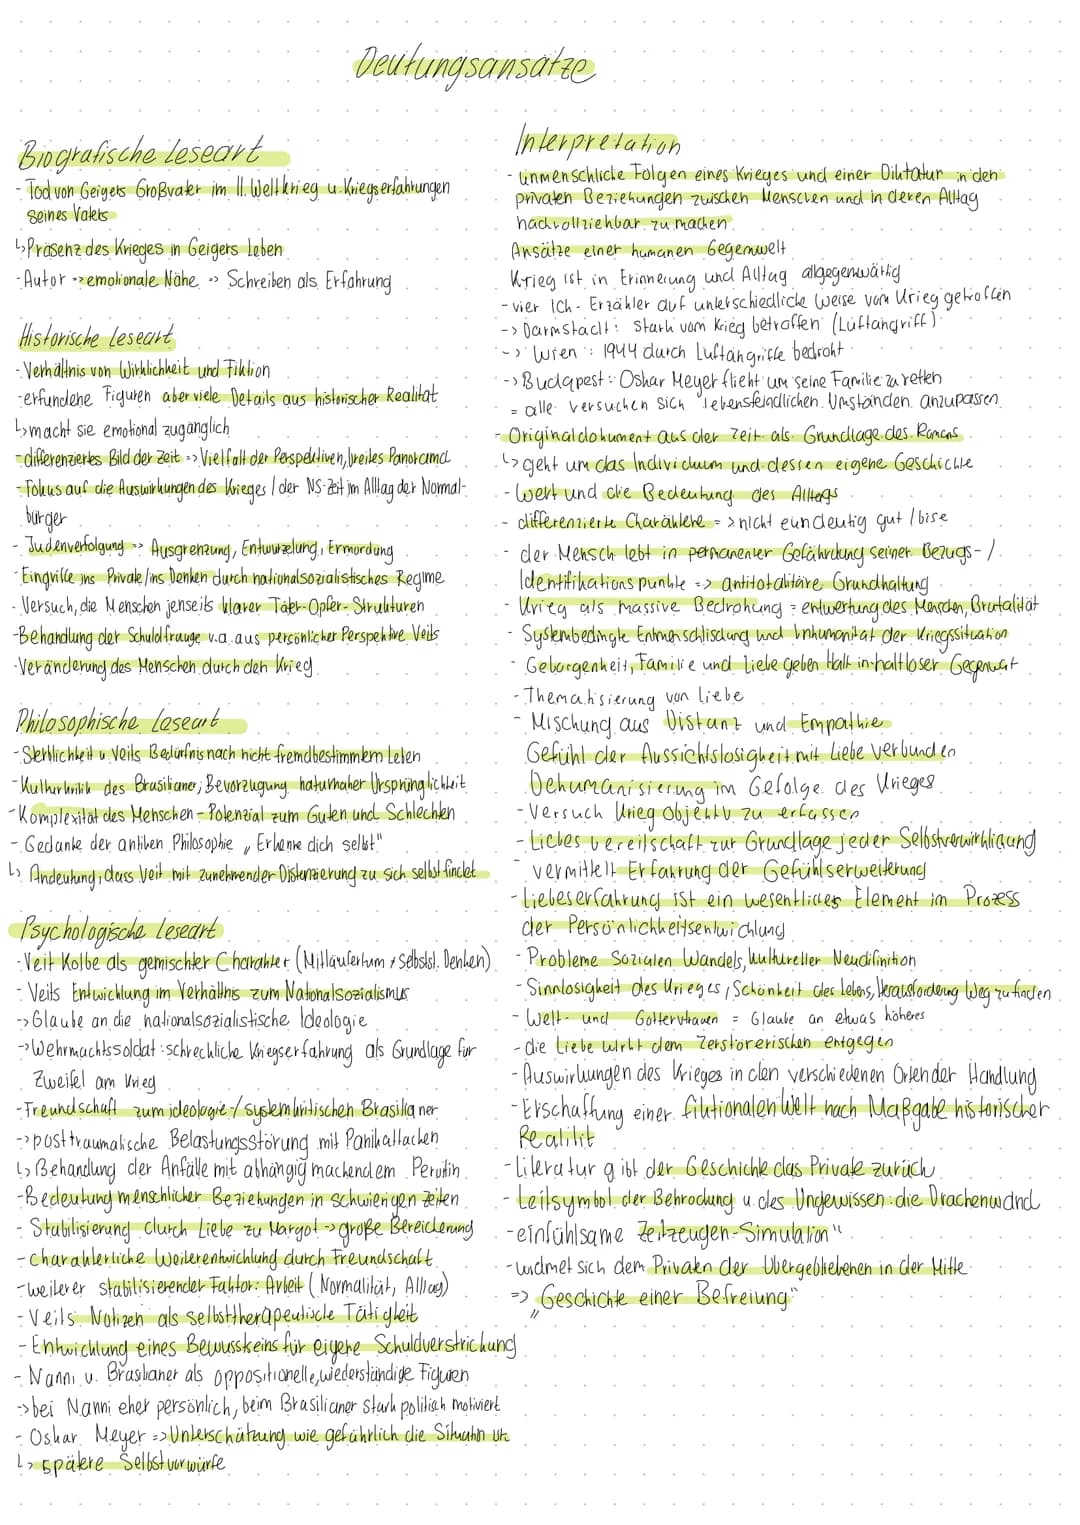 Deutungsansätze
Biografische Leseart
- Tod von Geigers Großvater im II. Weltkrieg u. Kriegserfahrungen
seines Vaters
↳ Präsenz des Krieges in Geigers Leben
- Autor => emotionale Nähe => Schreiben als Erfahrung
Historische Leseart
- Verhältnis von Wirklichkeit und Fiktion
- erfundene Figuren aber viele Details aus historischer Realität
↳ macht sie emotional zugänglich
- differenziertes Bild der Zeit => Vielfalt der Perspektiven, breites Panorama
- Fokus auf die Auswirkungen des Krieges / der NS-Zeit im Alltag der Normal-
bürger
- Judenverfolgung => Ausgrenzung, Entwurzelung, Ermordung
- Eingriffe ins Private/ins Denken durch nationalsozialistisches Regime
- Versuch, die Menschen jenseits klarer Täter-Opfer-Strukturen
- Behandlung der Schuldfrauge v.a. aus persönlicher Perspektive Veits
- Veränderung des Menschen durch den Krieg
Philosophische Leseart
- Sterblichkeit u. Veits Bedürfnis nach nicht fremdbestimmtem Leben
- Kulturkritik des Brasilianer; Bevorzugung naturnaher Ursprünglichkeit
- Komplexität des Menschen - Potenzial zum Guten und Schlechten
- Gedanke der antiken Philosophie „Erkenne dich selbst"
↳ Andeutung, dass Veit mit zunehmender Distanzierung zu sich selbst findet
Psychologische Leseart
- Veit Kolbe als gemischter Charakter (Mitläufertum + selbstst. Denken)
- Veits Entwicklung im Verhältnis zum Nationalsozialismus
-> Glaube an die nationalsozialistische Ideologie
-> Wehrmachtssoldat: schreckliche Kriegserfahrung als Grundlage für
Zweifel am Krieg
- Freundschaft zum ideologie-/systemkritischen Brasilianer
-> posttraumatische Belastungsstörung mit Panikattacken
↳ Behandlung der Anfälle mit abhängig machendem Pervitin
- Bedeutung menschlicher Beziehungen in schwierigen Zeiten
- Stabilisierung durch Liebe zu Margot -> große Bereicherung
- charakterliche Weiterentwicklung durch Freundschaft
- weiterer stabilisierender Faktor: Arbeit (Normalität, Alltag)
- Veits Notizen als selbsttherapeutische Tätigkeit
- Entwicklung eines Bewusstseins für eigene Schuldverstrickung
- Nanni u. Brasilianer als oppositionelle, wiederständige Figuren
-> bei Nanni eher persönlich, beim Brasilianer stark politisch motiviert
- Oskar Meyer => Unterschätzung wie gefährlich die Situation
↳ spätere Selbstvorwürfe
Interpretation
- unmenschliche Folgen eines Krieges und einer Diktatur in den
privaten Beziehungen zwischen Menschen und in deren Alltag
nachvollziehbar zu machen
Ansätze einer humanen Gegenwelt
Krieg ist in Erinnerung und Alltag allgegenwärtig
- vier Ich-Erzähler auf unterschiedliche Weise vom Krieg getroffen
-> Darmstadt: stark vom Krieg betroffen (Luftangriff)
-> Wien: 1944 durch Luftangriffe bedroht
-> Budapest: Oskar Meyer flieht um seine Familie zu retten
= alle versuchen sich lebensfeindlichen Umständen anzupassen
- Originaldokument aus der Zeit als Grundlage des Romans
↳ geht um das Individuum und dessen eigene Geschichte
- Wert und die Bedeutung des Alltags
- differenzierte Charaktere => nicht eundeutig gut / böse
- der Mensch lebt in permanenter Gefährdung seiner Bezugs- /
Identifikationspunkte => antitotalitäre Grundhaltung
- Krieg als massive Bedrohung = entwertung des Menschen, Brutalität
- Systembedingte Entmenschlischung und Inhumanität der Kriegssituation
- Geborgenheit, Familie und Liebe geben Halt in haltloser Gegenwart
- Thematisierung von Liebe
- Mischung aus Distanz und Empathie
Gefühl der Aussichtslosigkeit mit Liebe verbunden
Dehumanisierung im Gefolge des Krieges
- Versuch Krieg objektiv zu erfassen
- Liebesbereitschaft zur Grundlage jeder Selbstverwirkligung
- vermittelt Erfahrung der Gefühlserweiterung
- Liebeserfahrung ist ein wesentliches Element im Prozess
der Persönlichkeitsentwicklung
- Probleme Sozialen Wandels, kultureller Neudifinition
- Sinnlosigkeit des Krieges, Schönheit des Lebens, Herausforderung Weg zu finden
- Welt- und Gottervtrauen = Glaube an etwas höheres
- die Liebe wirkt dem Zerstörerischen entgegen
- Auswirkungen des Krieges in den verschiedenen Orten der Handlung
- Erschaffung einer fiktionalen Welt nach Maßgabe historischer
Realität
- Literatur gibt der Geschichte das Private zurück
- Leitsymbol der Behrodung u. des Ungewissen: die Drachenwand
- einfühlsame Zeitzeugen-Simulation"
- widmet sich dem Privaten der Übergebliebenen in der Mitte
=> „Geschichte einer Befreiung"